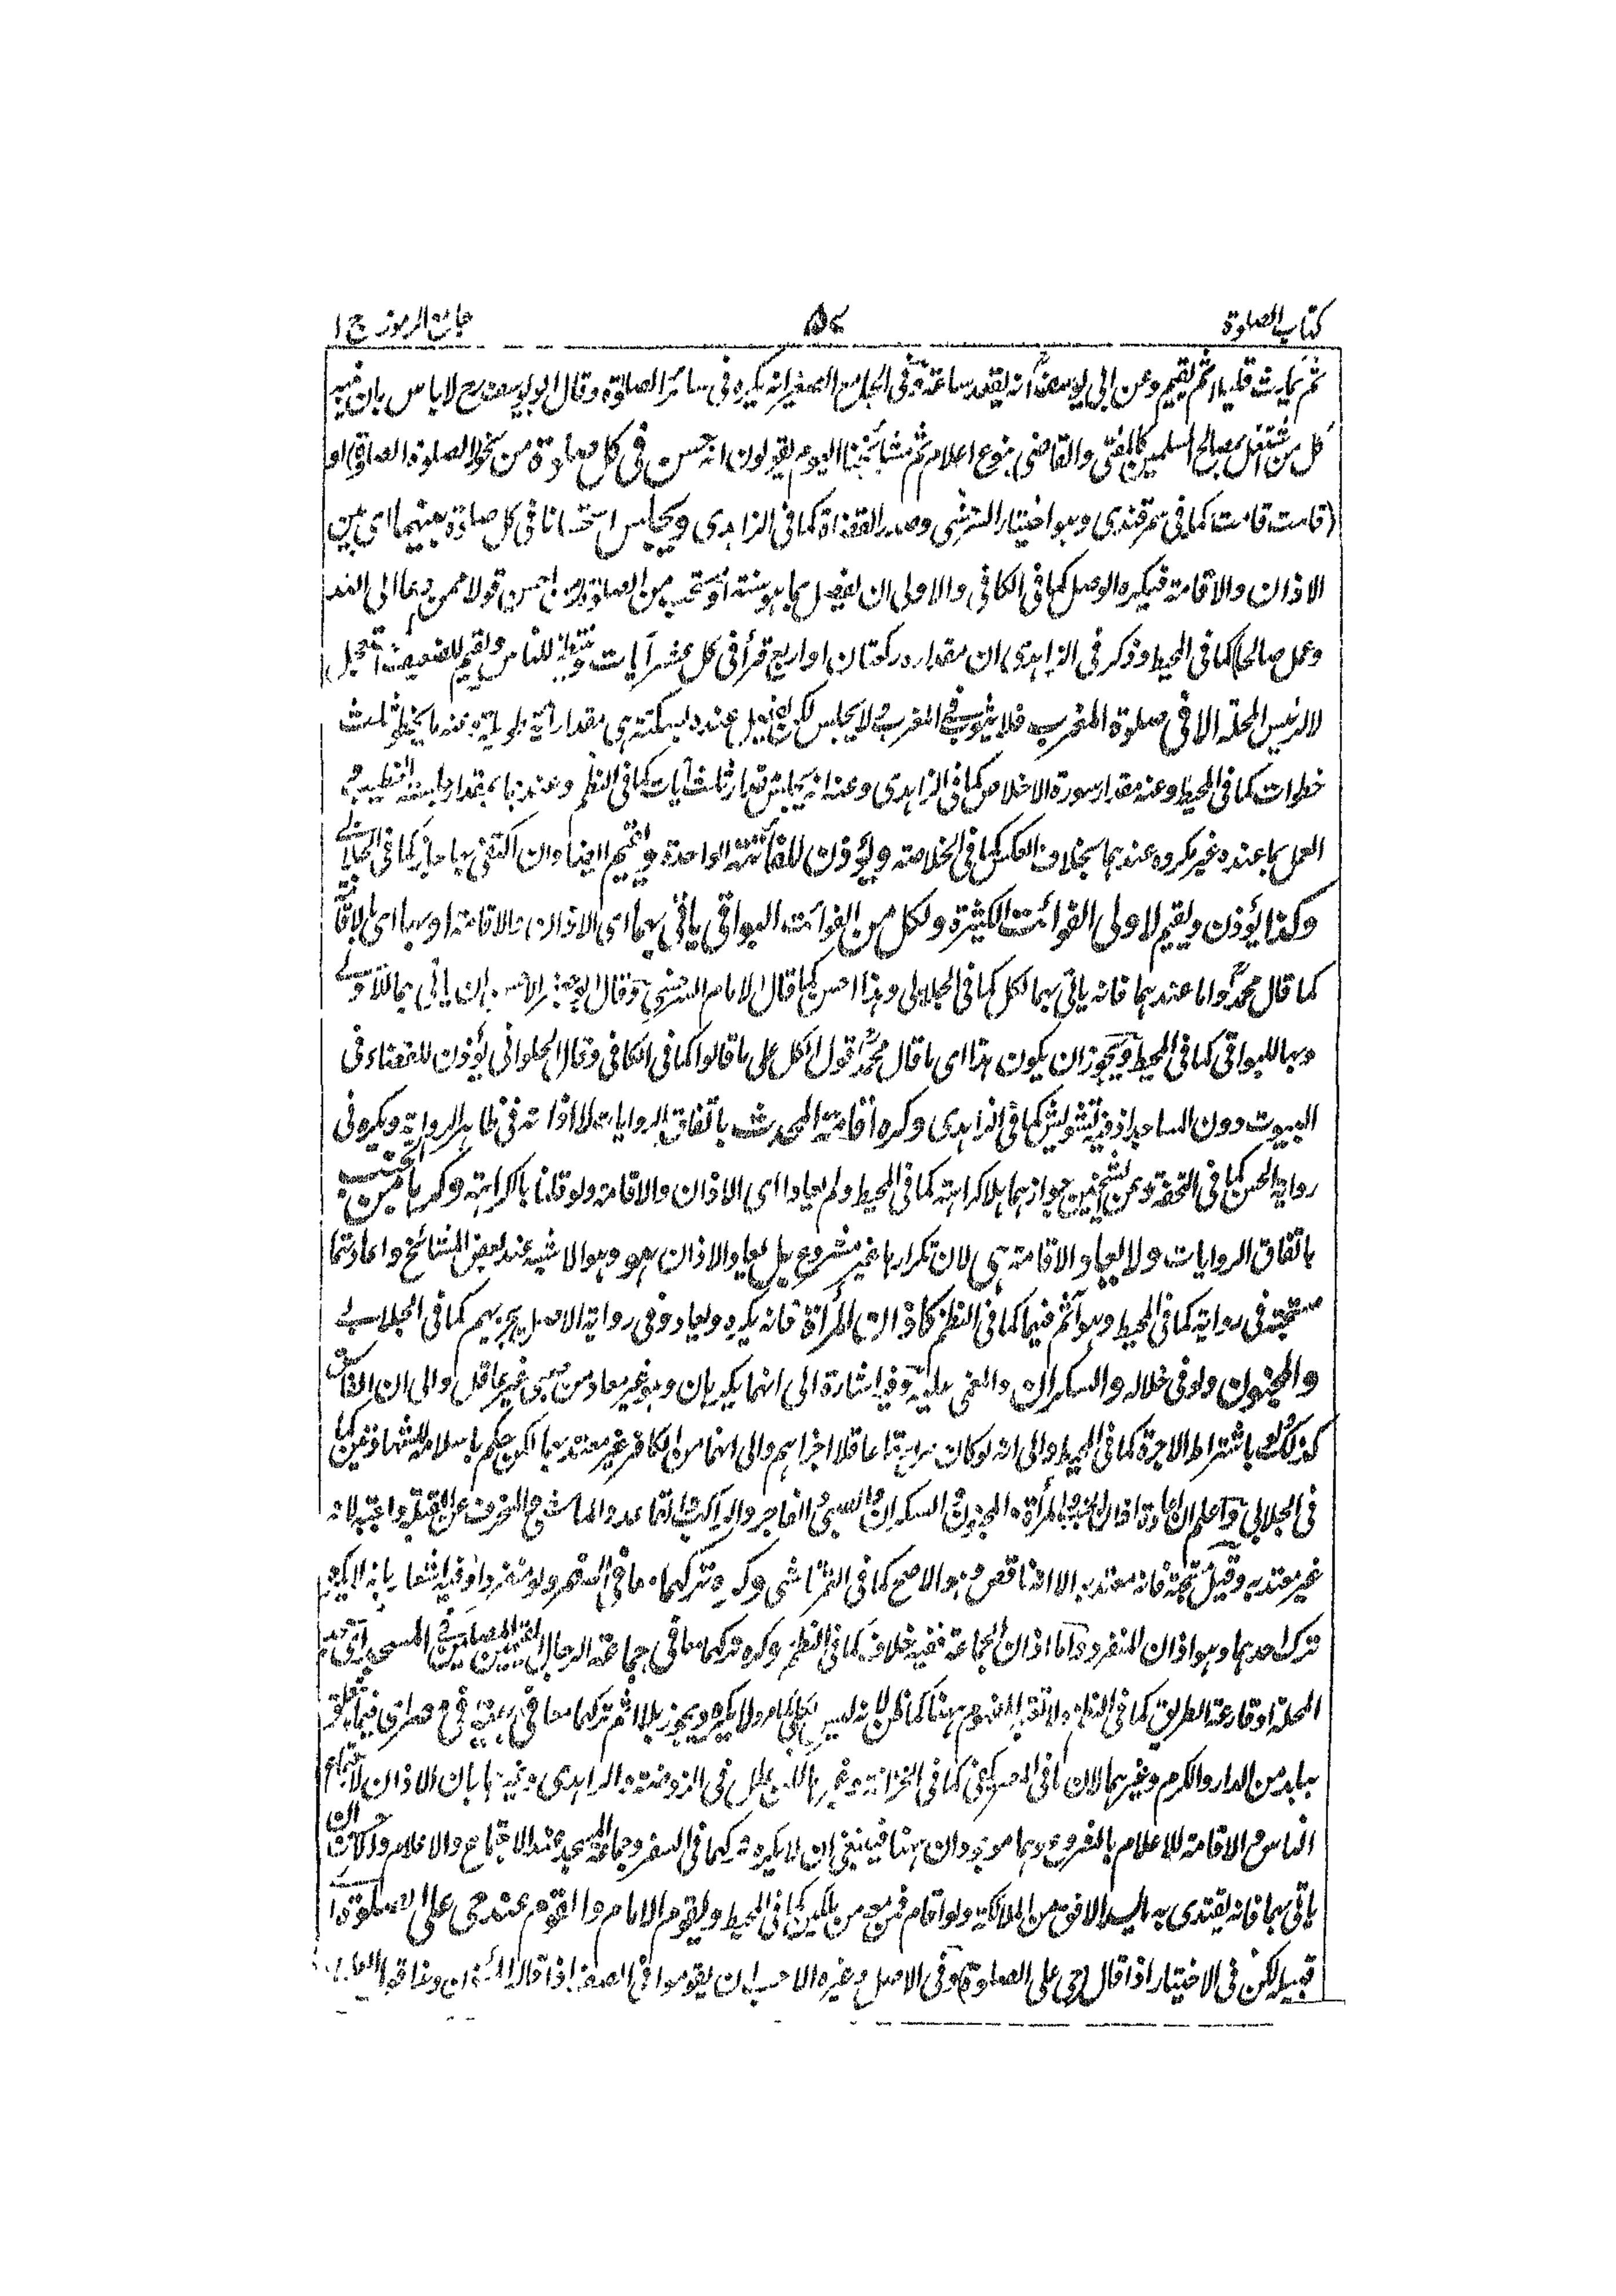 كتاب الصلوة
جامع الرموز ج ١
ثم يمكث قليلا ثم يقيم وعن ابى يوسف انه يقعد ساعة وفى الجامع الصغير انه يكره فى سائر الصلوة وقال ابو يوسف رح لا باس بان
كل من اشتغل بمصالح المسلمين كالمفتى والقاضى بنوع اعلام ثم مشائخنا اليوم يقولون انه حسن فى كل صلوة من نحو الصلوة الصلوة او
(قامت قامت) كما فى سمرقندى وهو اختيار السرخسى وصدر القضاة كما فى الزاهدى ويجلس استحسانا فى كل صلوة بينهما اى بين
الاذان والاقامة فيكره الوصل كما فى الكافى والاولى ان يفصل بما هو سنة او مستحب من الصلوة احسن قولا ممن دعا الى الله
وعمل صالحا) كما فى المحيط وذكر فى الزاهدى ان مقداره ركعتان او اربع قرأ فى كل عشر آيات وينتظر للناس ويقيم للضعيف
لا لرئيس المحلة الا فى صلوة المغرب فلا يثوب فى المغرب ولا يجلس لكن يفصل عنده بسكتة هى مقدار آية طويلة وعنه ما يخطو ثلث
خطوات كما فى المحيط وعنه مقدار سورة الاخلاص كما فى الزاهدى وعنه انه يجلس مقدار ثلث آيات كما فى النظم وعندهما بمقدار جلسة الخطيب
العمل بما عنده غير مكروه عندهما بخلاف العكس كما فى الخلاصة ويؤذن للفائتة الواحدة ويقيم ايضا وان اكتفى بها جاز كما فى الجلابى
وكذا يؤذن ويقيم لاولى الفوائت الكثيرة ولكل من الفوائت البواقى ياتى بهما اى الاذان والاقامة او بها اى بالاقامة
كما قال محمد واما عندهما فانه ياتى بهما لكل كما فى الجلابى وهذا احسن كما قال الامام السرخسى وقال ابو جعفر الاحسن ان ياتى بهما للاولى
وبها للبواقى كما فى المحيط ويجوز ان يكون هذا اى ما قال محمد قول الكل على ما قالوا كما فى الكافى وقال الحلوانى يؤذن للقضاء فى
البيوت دون المساجد اذ فيه تشويش كما فى الزاهدى وكره اقامة المحدث باتفاق الروايات لا اذانه فى ظاهر الرواية ويكره فى
رواية الحسن كما فى التحفة وعن الشيخين جوازهما بلا كراهة كما فى المحيط ولم يعادا اى الاذان والاقامة ولو قلنا بالكراهة وكرها من الجنب
باتفاق الروايات ولا يعاد الاقامة هى لان تكرارها غير مشروع بل يعاد الاذان هو وهو الاشبه عند بعض المشائخ واعادتهما
مستحبة فى رواية كما فى المحيط وهو آثم فيهما كما فى النظم كاذان المرأة فانه يكره ويعاد وفى رواية الاصل يجزيهم كما فى الجلابى
والمجنون ولو فى خلاله والسكران والمغمى عليه وفيه اشارة الى انهما يكرهان وهو غير معاد من صبى غير عاقل والى ان الفاسق
كذلك باشتراط الاجرة كما فى المحيط والى انه لو كان مراهقا عاقلا اجزاهم والى انهما من الكافر غير معتد بها لكن حكم باسلامه للشهادتين كما
فى الجلابى واعلم ان اعادة اذان الجنب والمرأة والمجنون والسكران والصبى والفاجر والراكب والقاعد والماشى والمنحرف عن القبلة واجبة لانه
غير معتد به وقيل مستحبة فانه معتد به الا انه ناقص وهو الاصح كما فى التمرتاشى وكره تركهما معا فى السفر ولو منفردا وفيه اشعار بانه لا يكره
ترك احدهما وهو اذان المنفرد واما اذان الجماعة ففيه خلاف كما فى النظم وكره تركهما معا فى جماعة الرجال المقيمين المصلين فى المسجد
المحلة او قارعة الطريق كما فى ولا يكره ويجوز بلا اثم تركهما معا فى بيته فى مصر
بباب من الدار والكرم وغيرهما لان كما فى الخزانة وغيرها لكن علل فى الروضة والزاهدى وغيرهما بان الاذان لاجتماع
الناس والاقامة للاعلام بالشروع وهما موجودان ههنا فينبغى ان لا يكره تركهما فى السفر وجماعة المسجد عند الاجتماع والاعلام
ياتى بهما فانه يقتدى به الافق من الملائكة ولو اقام فمن معه من ملكين كما فى المحيط ويقوم الامام والقوم عند حى على الصلوة
قبيله لكن فى الاختيار اذا قال (حى على الصلوة) وفى الاصل وغيره الاحب ان يقوموا فى الصف اذا قال المؤذن